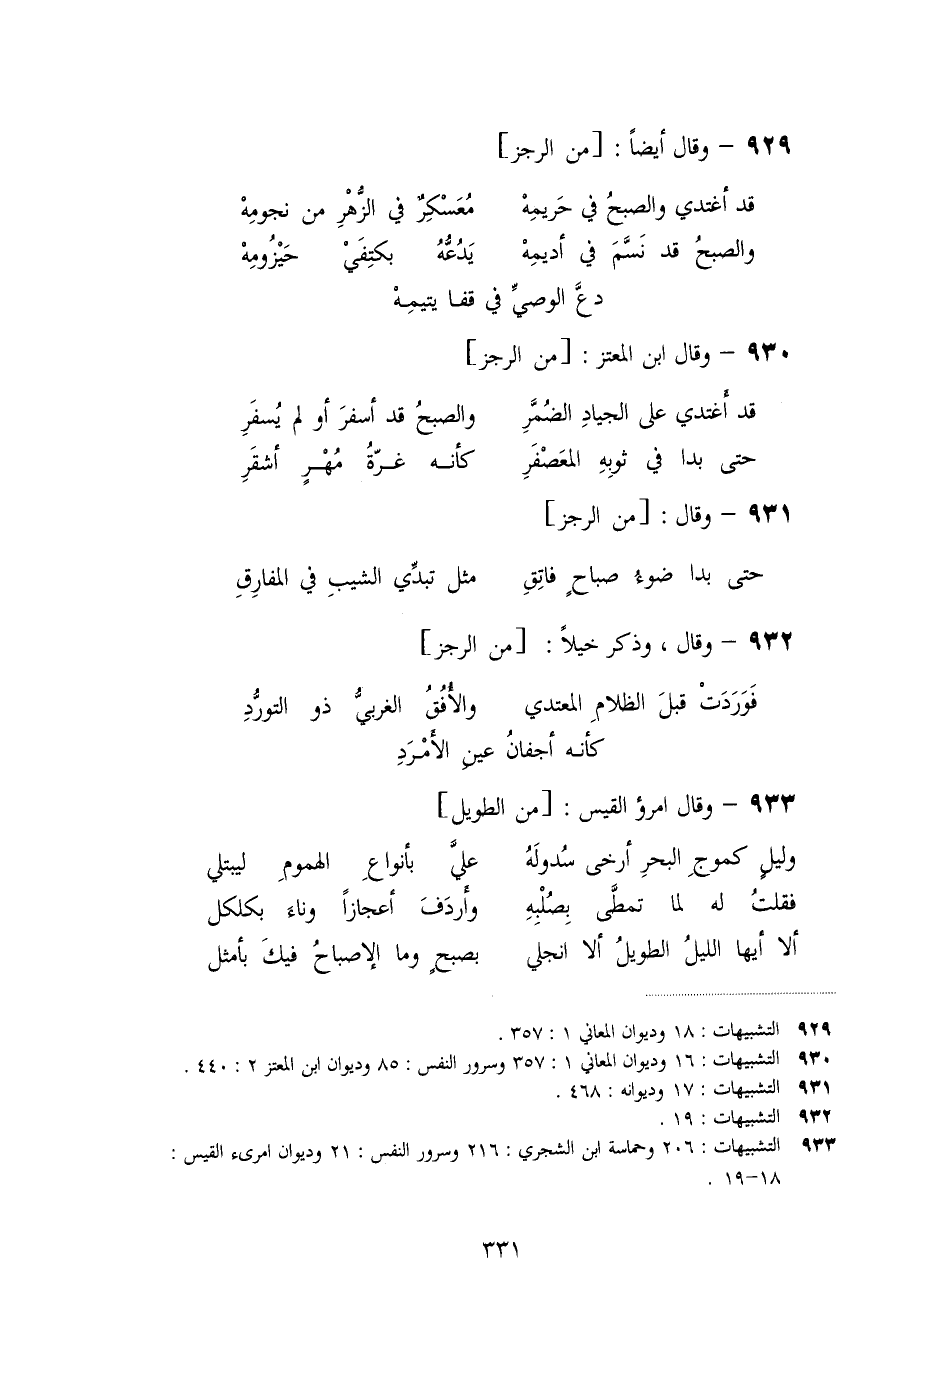 ٩٢٩ – وقال أيضاً : [من الرجز]
قد أغتدي والصبحُ في حَريمِهْ مُعَسْكِرٌ في الزُّهْرِ من نجومِهْ
والصبحُ قد نَسَّمَ في أديمِهْ يَدُعُّهُ بكتِفَيْ حَيْزُومِهْ
دعَّ الوصيِّ في قفا يتيمِهْ
٩٣٠ – وقال ابن المعتز : [من الرجز]
قد أَغتدي على الجيادِ الضُمَّرِ والصبحُ قد أسفرَ أو لم يُسفَرِ
حتى بدا في ثوبِهِ المعَصْفَرِ كأنه غرّةُ مُهْرٍ أشقَرِ
٩٣١ – وقال : [من الرجز]
حتى بدا ضوءُ صباحٍ فاتِقِ مثل تبدِّي الشيبِ في المفارِقِ
٩٣٢ – وقال ، وذكر خيلاً : [من الرجز]
فَوَرَدَتْ قبلَ الظلامِ المعتدي والأُفُقُ الغربيُّ ذو التورُّدِ
كأنه أجفانُ عينِ الأَمْرَدِ
٩٣٣ – وقال امرؤ القيس : [من الطويل]
وليلٍ كموجِ البحرِ أرخى سُدولَهُ عليَّ بأنواعِ الهمومِ ليبتلي
فقلتُ له لما تمطَّى بِصُلْبِهِ وأَردَفَ أعجازاً وناءَ بكلكل
ألا أيها الليلُ الطويلُ ألا انجلي بصبحٍ وما الإصباحُ فيكَ بأمثل
٩٢٩ التشبيهات : ١٨ وديوان المعاني ١ : ٣٥٧ .
٩٣٠ التشبيهات : ١٦ وديوان المعاني ١ : ٣٥٧ وسرور النفس : ٨٥ وديوان ابن المعتز ٢ : ٤٤٠ .
٩٣١ التشبيهات : ١٧ وديوانه : ٤٦٨ .
٩٣٢ التشبيهات : ١٩ .
٩٣٣ التشبيهات : ٢٠٦ وحماسة ابن الشجري : ٢١٦ وسرور النفس : ٢١ وديوان امرىء القيس :
١٨–١٩ .
٣٣١